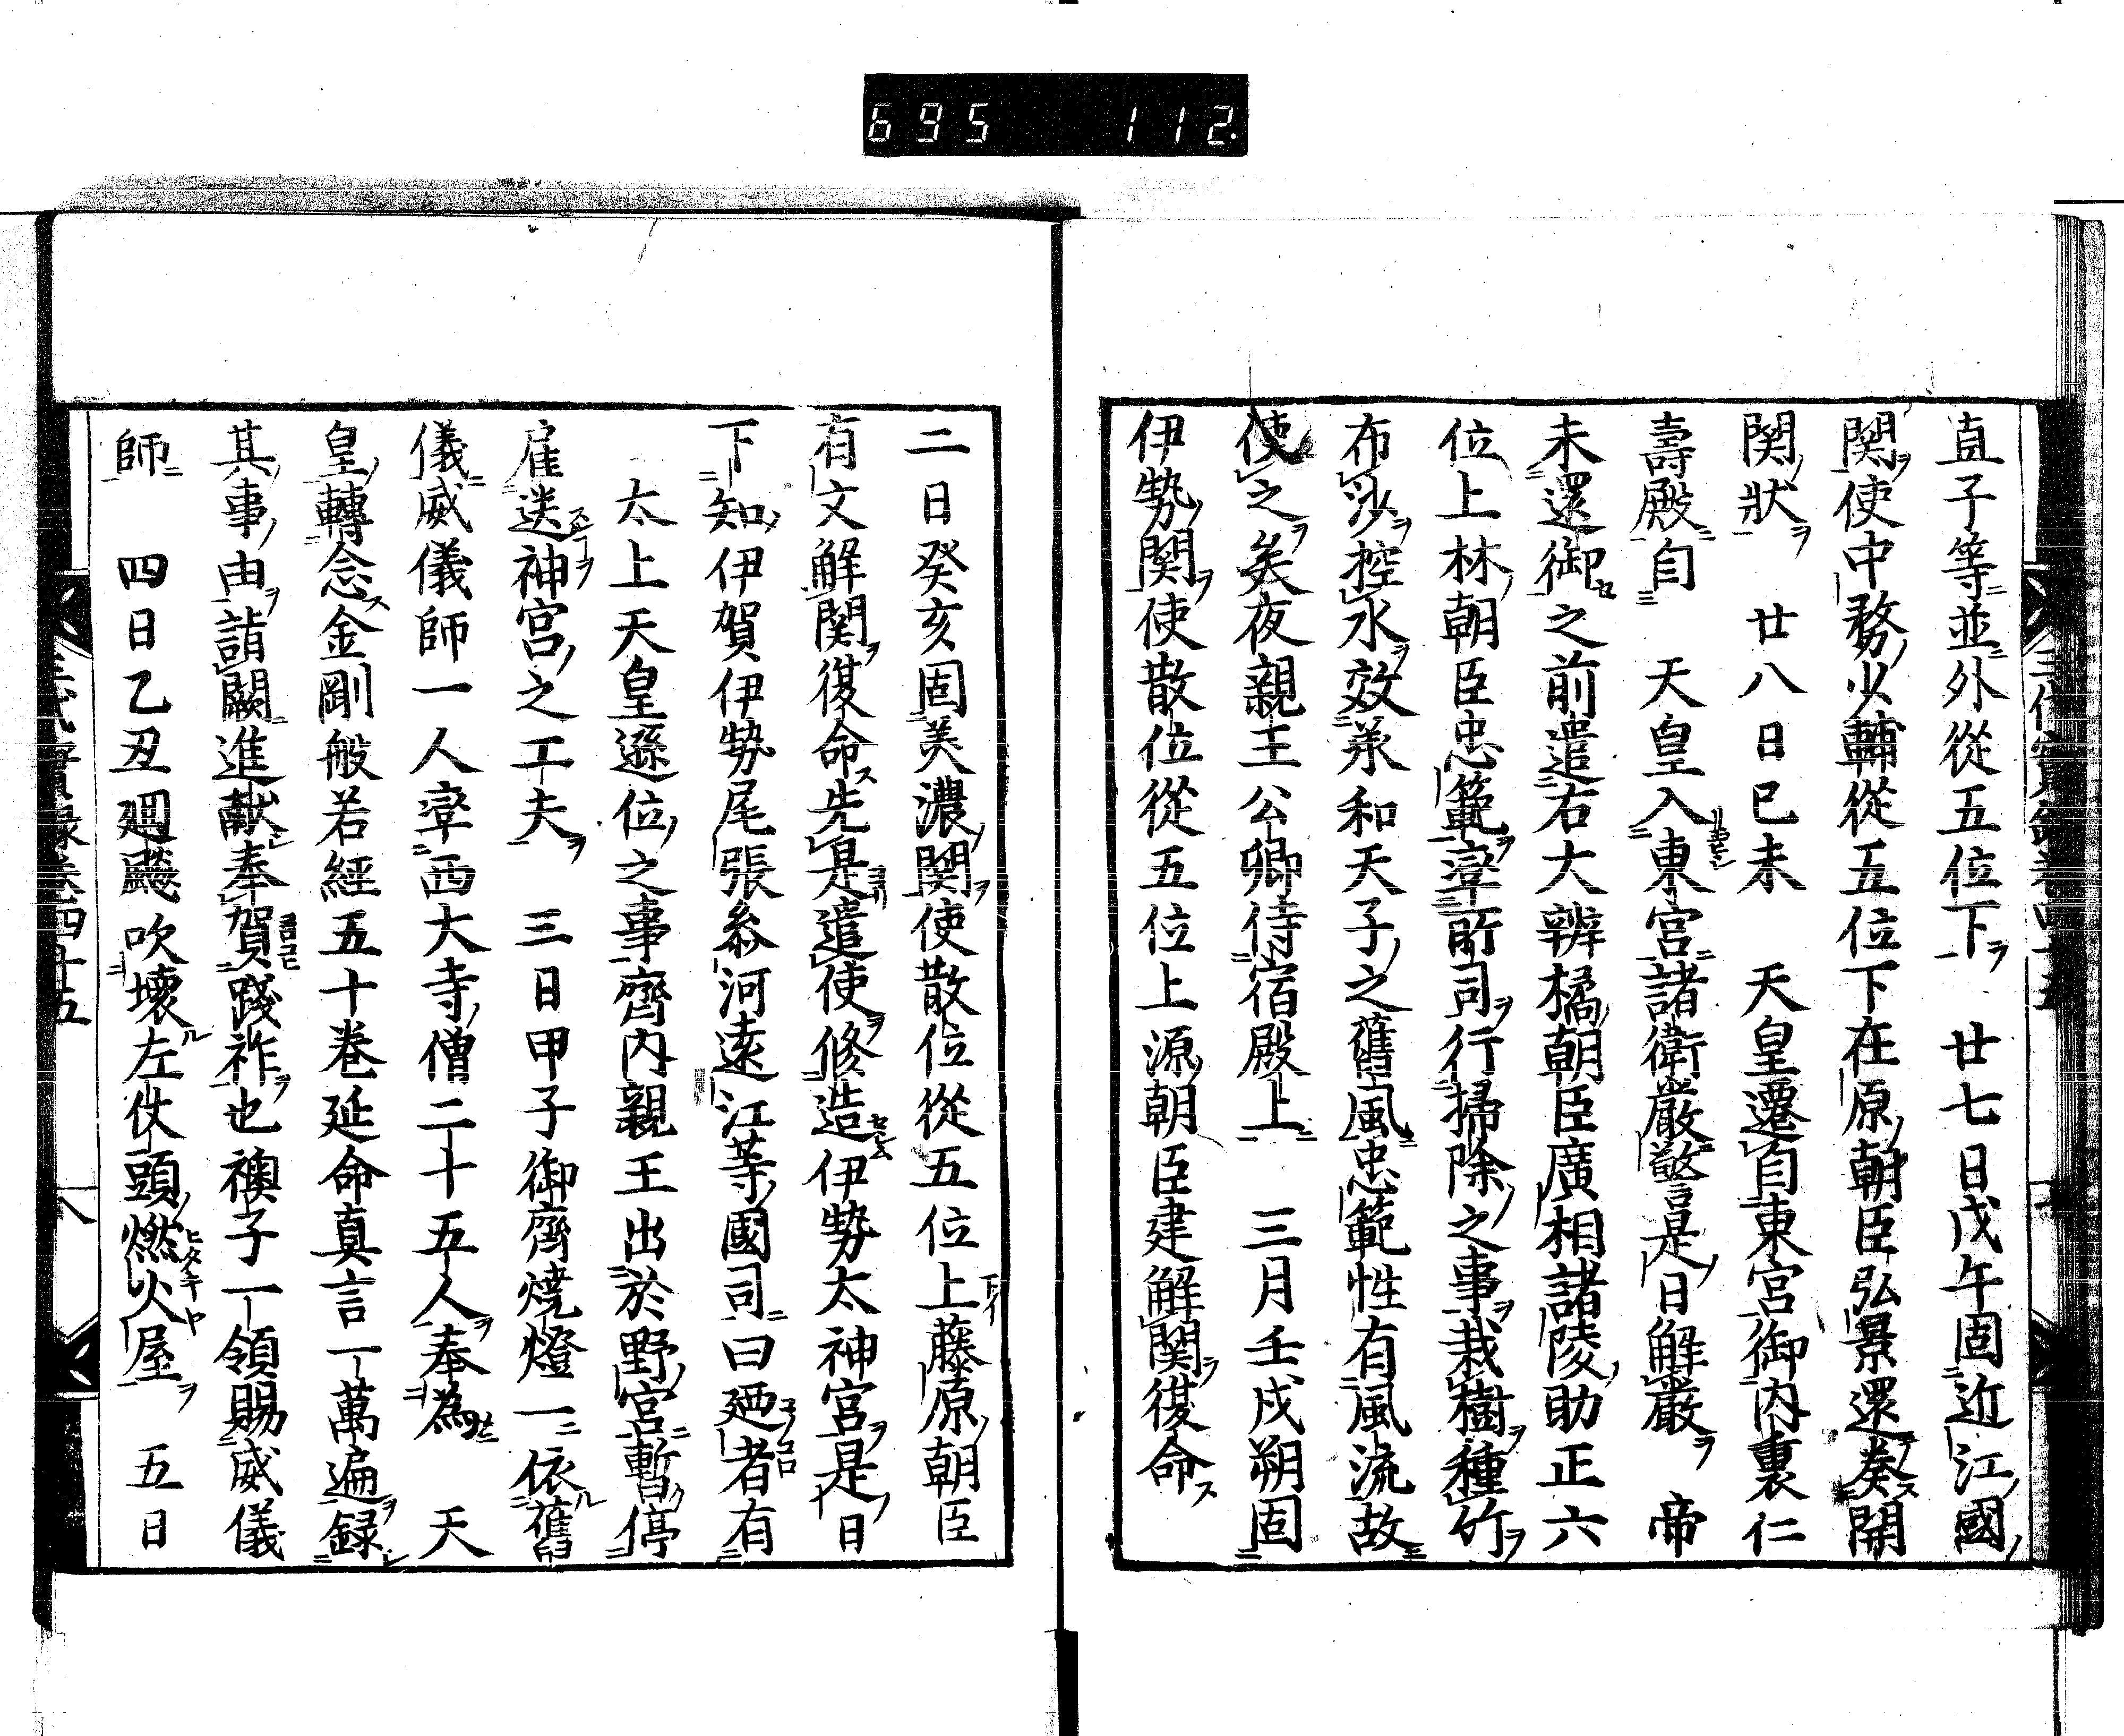 695 112.
直子等並外從五位下 廿七日戊午固近江國
関使中務少輔從五位下在原朝臣弘景還奏開
関狀 廿八日已未 天皇遷自東宮御内裏仁
壽殿自 天皇入東宮諸衛嚴警是日解嚴 帝
未還御之前遣右大辨橘朝臣廣相諸陵助正六
位上林朝臣忠範率所司行掃除之事栽樹種竹
布沙控水效承和天子之舊風忠範性有風流故
使之矣夜親王公卿侍宿殿上 三月壬戌朔固
伊勢関使散位從五位上源朝臣建解関復命
二日癸亥固美濃関使散位從五位上藤原朝臣
有文解関復命先是遣使修造伊勢太神宮是日
下知伊賀伊勢尾張叅河遠江等國司曰廼者有
太上天皇遜位之事齊内親王出於野宮暫停
雇送神宮之工夫 三日甲子御齊燒燈一依舊
儀威儀師一人率西大寺僧二十五人奉為 天
皇轉念金剛般若經五十巻延命真言一萬遍録
其事由詣闕進献奉賀踐祚也襖子一領賜威儀
師 四日乙丑廻飈吹壊左仗頭燃火屋 五日
三代實録巻四十五 八